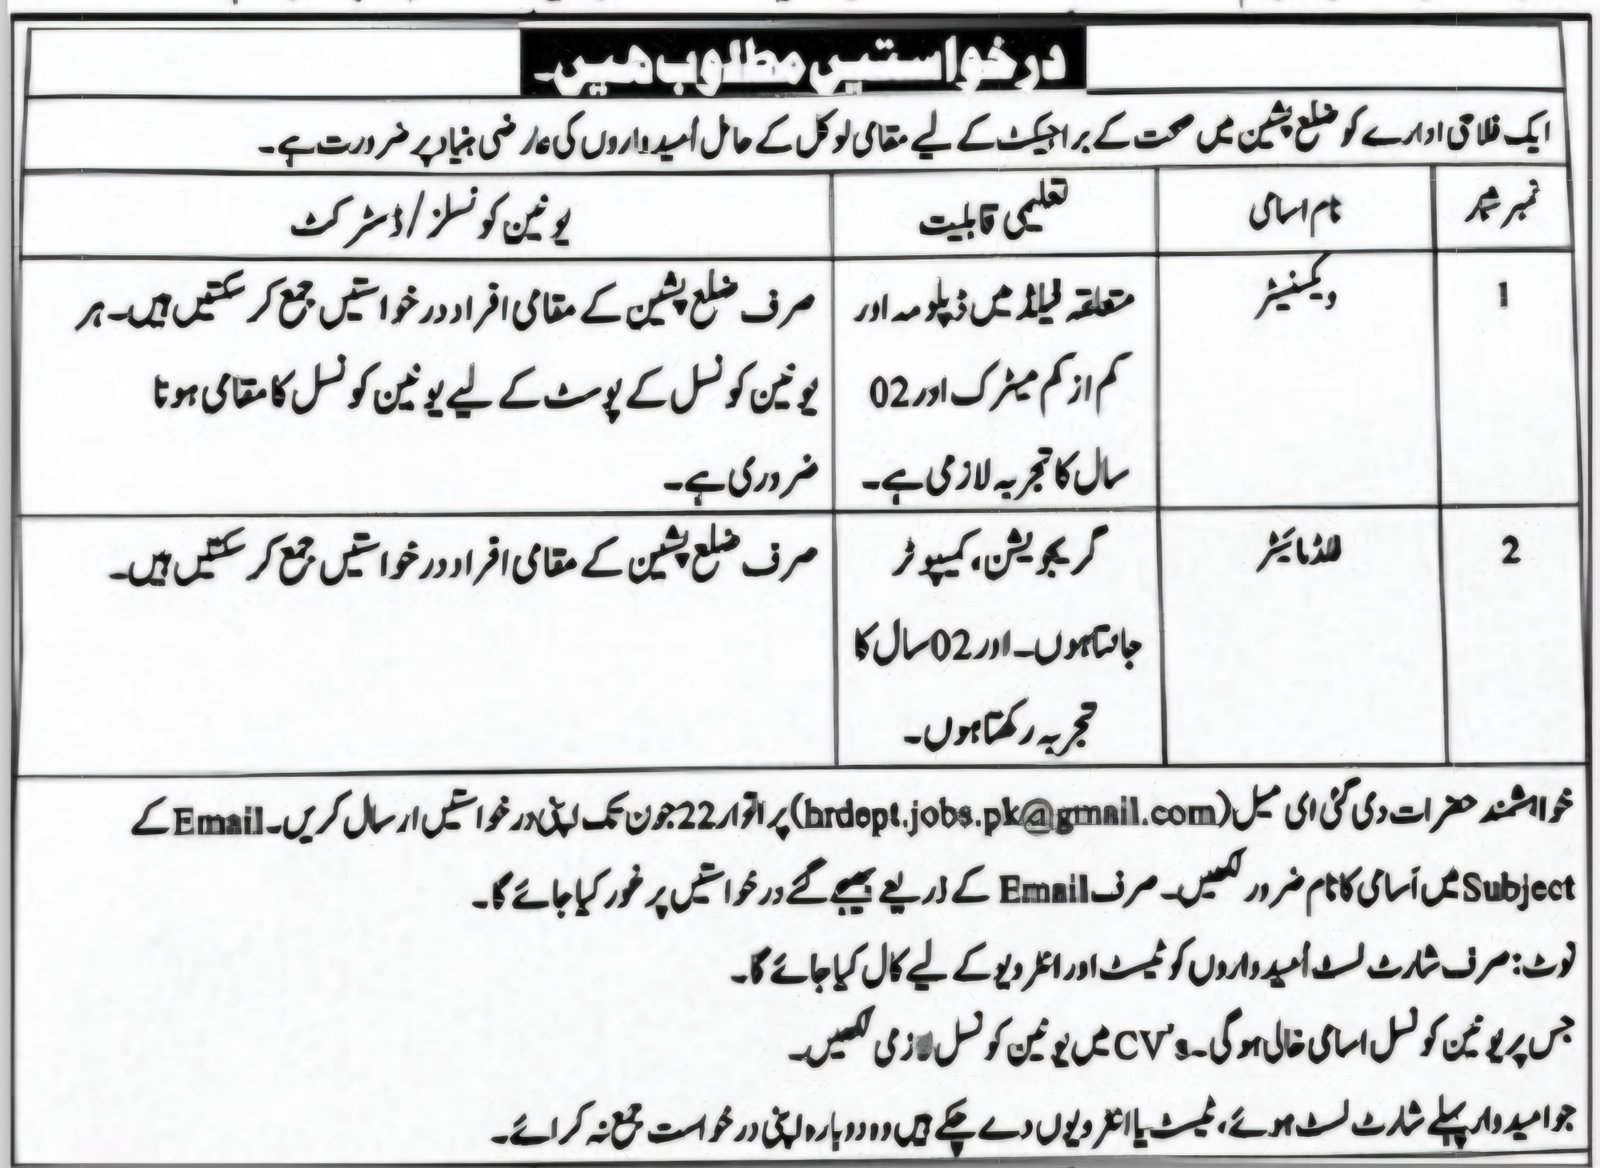 درخواستیں مطلوب ھیں۔
ایک فلاحی ادارے کو ضلع پشین میں صحت کے پراجیکٹ کے لیے مقامی لوکل کے حامل اُمیدواروں کی عارضی بنیاد پر ضرورت ہے۔
نمبر شمار نام اسامی تعلیمی قابلیت یونین کونسلز/ڈسٹرکٹ
1 ویکسنیٹر متعلقہ فیلڈ میں ڈپلومہ اور صرف ضلع پشین کے مقامی افراد درخواستیں جمع کر سکتیں ہیں۔ ہر
کم از کم میٹرک اور 02 یونین کونسل کے پوسٹ کے لیے یونین کونسل کا مقامی ہونا
سال کا تجربہ لازمی ہے۔ ضروری ہے۔
2 گریجویشن، کمپیوٹر صرف ضلع پشین کے مقامی افراد درخواستیں جمع کر سکتیں ہیں۔
جانتا ہوں۔ اور 02 سال کا
تجربہ رکھتا ہوں۔
خواہشمند حضرات دی گئی ای میل (hrdept.jobs.pk@gmail.com) پر اتوار 22 جون تک اپنی درخواستیں ارسال کریں۔ Email کے
Subject میں آسامی کا نام ضرور لکھیں۔ صرف Email کے ذریعے بھیجے گئے درخواستیں پر غور کیا جائے گا۔
نوٹ: صرف شارٹ لسٹ اُمیدواروں کو ٹیسٹ اور انٹرویو کے لیے کال کیا جائے گا۔
جس پر یونین کونسل اسامی خالی ہوگی۔ CV's میں یونین کونسل لازمی لکھیں۔
جو امیدوار پہلے شارٹ لسٹ ہوئے، ٹیسٹ یا انٹرویوں دے چکے ہیں وہ دوبارہ اپنی درخواست جمع نہ کرائے۔